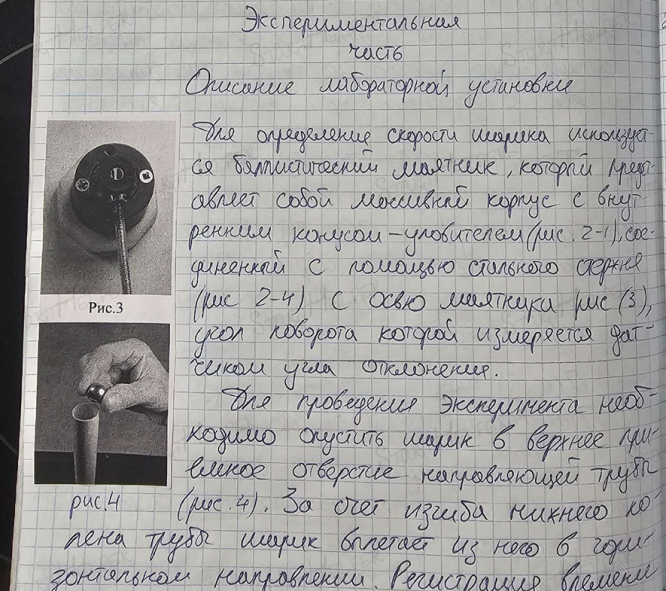 Экспериментальная
часть
Описание лабораторной установки
Для определение скорости шарика использует-
ся баллистический маятник, который предст-
авляет собой массивный корпус с внут-
ренним конусом-уловителем (рис. 2-1), сое-
диненный с помощью стального стержня
(рис 2-4) с осью маятника рис (3),
Рис.3
угол поворота которой измеряется дат-
чиком угла отклонения.
Для проведения эксперимента необ-
ходимо опустить шарик в верхнее при-
емное отверстие направляющей трубы
рис.4 (рис.4). За счет изгиба нижнего ко-
лена трубы шарик вылетает из него в гори-
зонтальном направлении. Регистрация времени